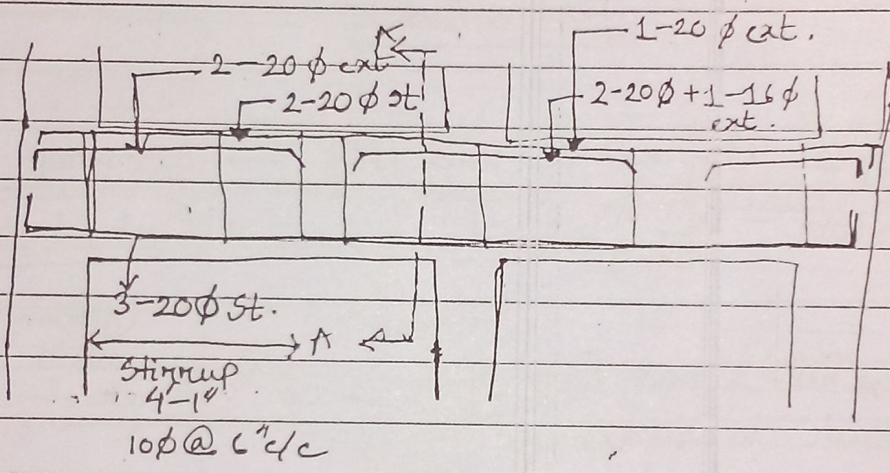 1-20 φ ext.
2-20 φ ext
2-20 φ st
2-20 φ + 1-16 φ
ext.
3-20 φ St.
A
Stirrup
4'-1"
10 φ @ 6" c/c